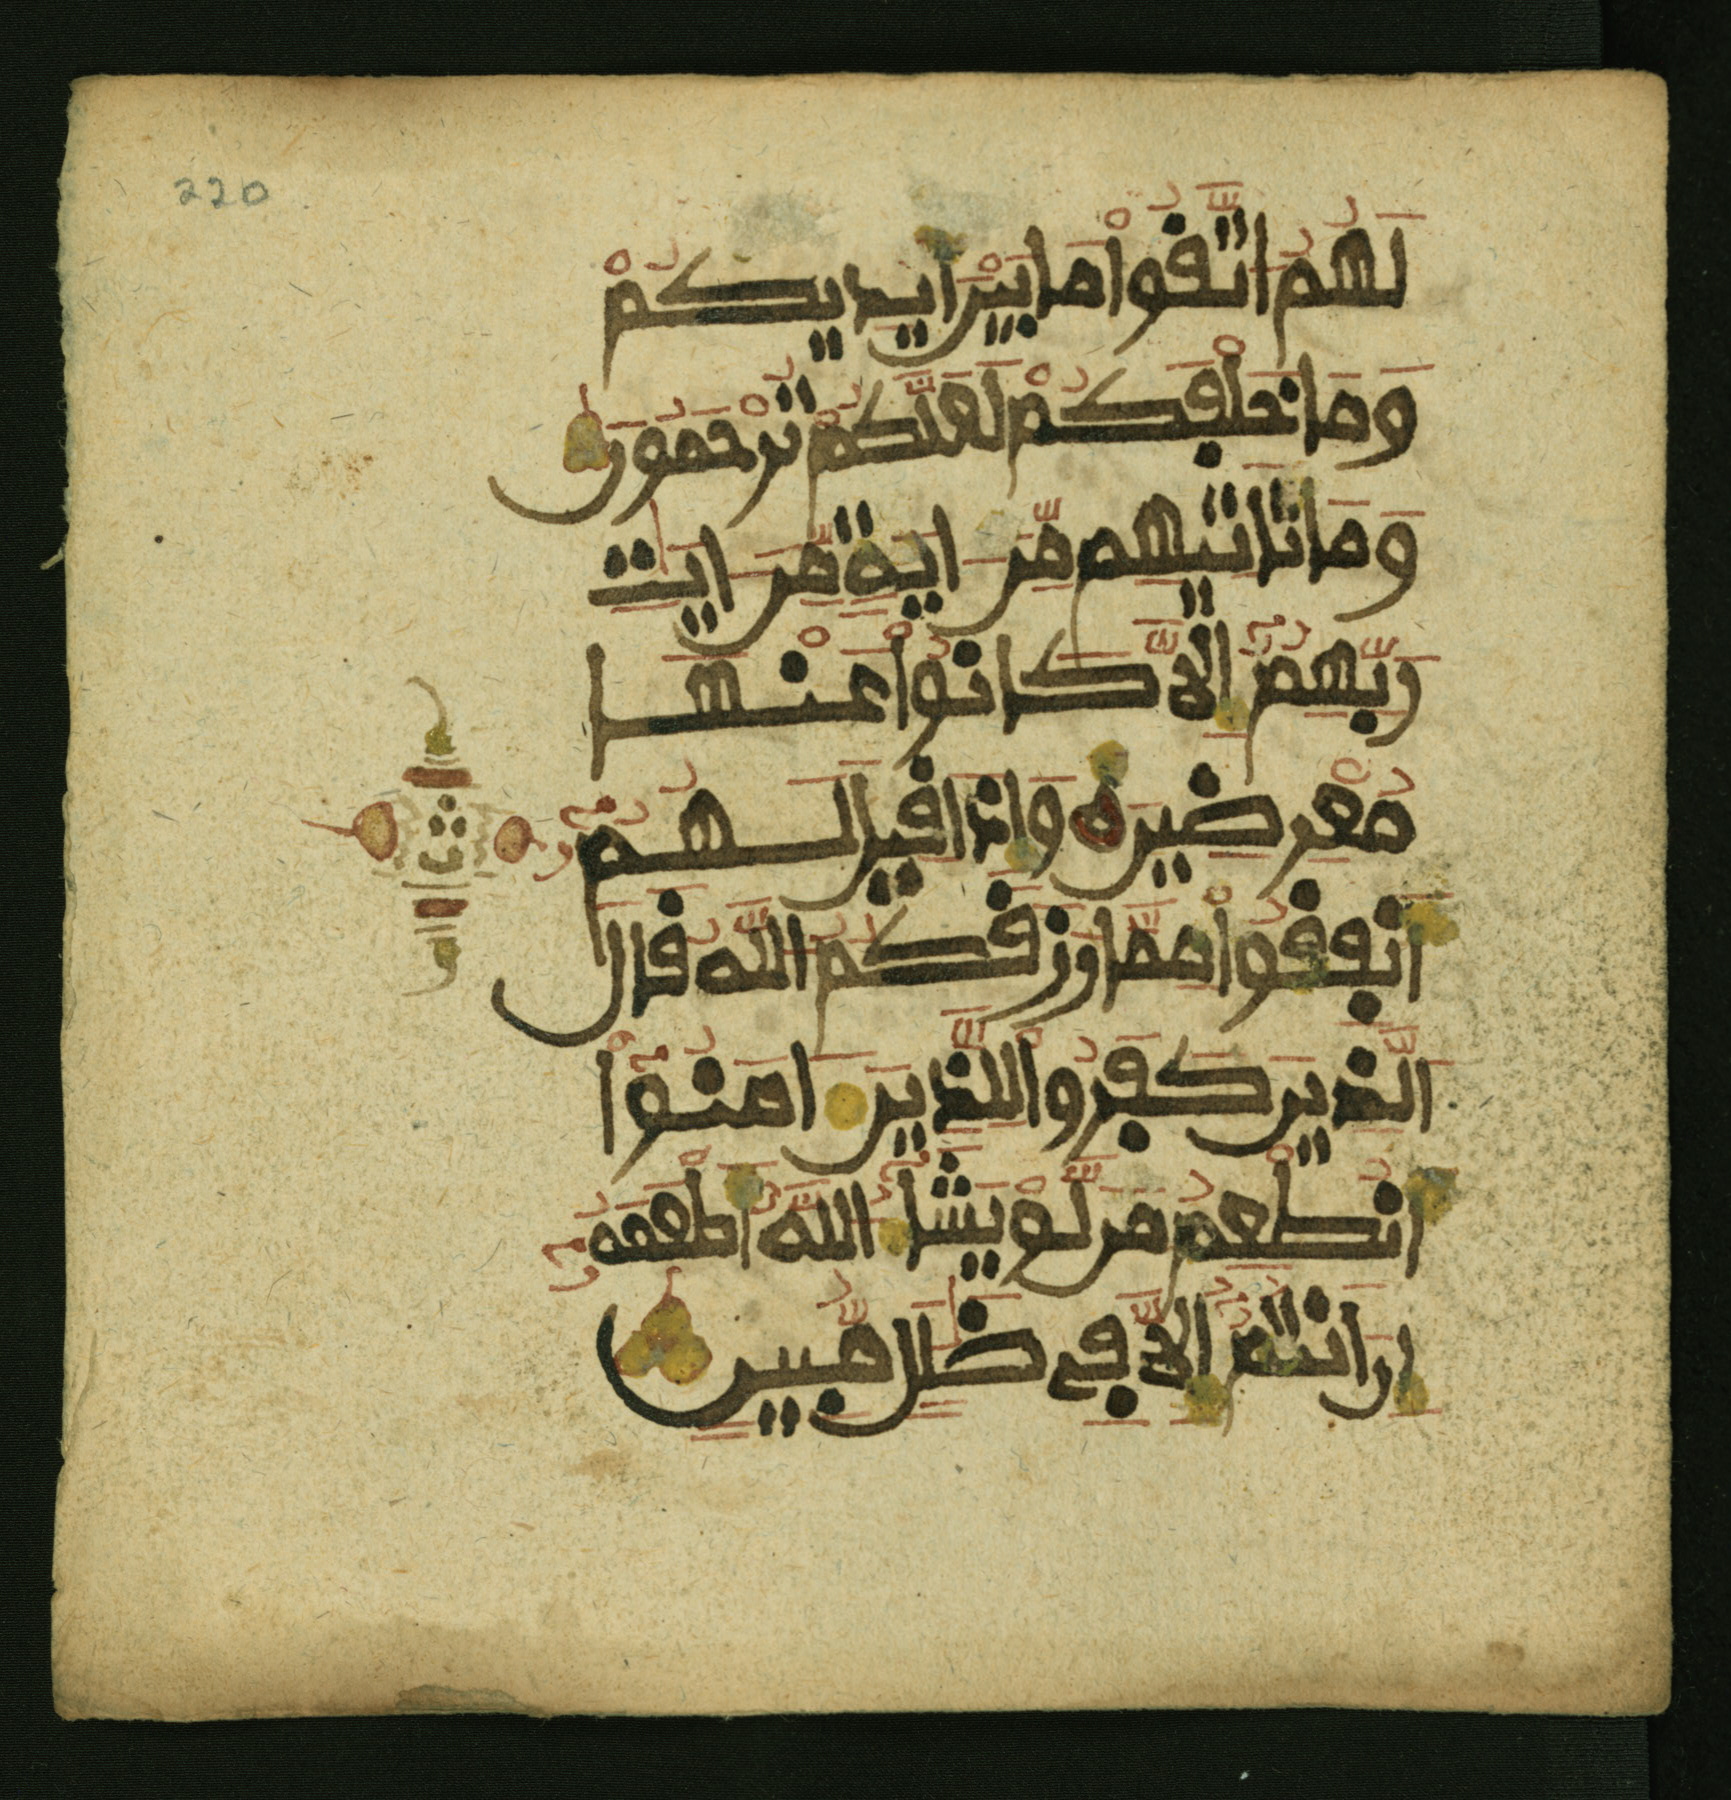 220
لَهُمُ اتَّقُواْ مَا بَيْنَ أَيْدِيكُمْ
وَمَا خَلْفَكُمْ لَعَلَّكُمْ تُرْحَمُونَ
وَمَا تَاتِيهِم مِّنَ ايَةٍ مِّنَ ايَٰتِ
رَبِّهِمُ إِلَّا كَانُواْ عَنْهَا
مُعْرِضِينَ وَإِذَا قِيلَ لَهُمُ
أَنفِقُواْ مِمَّا رَزَقَكُمُ اللَّهُ قَالَ
الَّذِينَ كَفَرُواْ لِلَّذِينَ ءَامَنُواْ
أَنُطْعِمُ مَن لَّوْ يَشَاءُ اللَّهُ أَطْعَمَهُ
إِنَ انتُمُ إِلَّا فِي ضَلَٰلٍ مُّبِينٍ